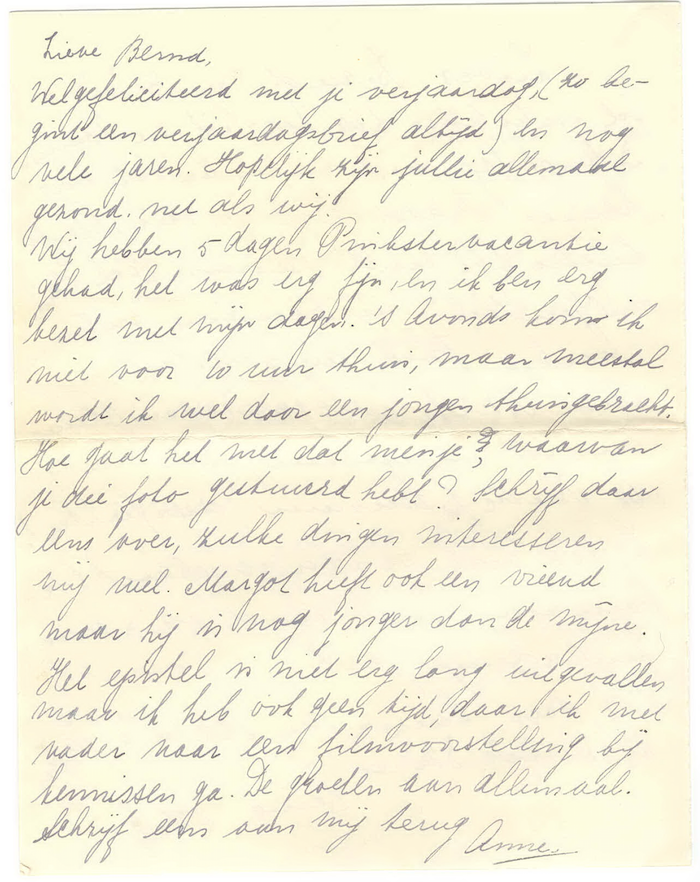 Lieve Bernd,
Welgefeliciteerd met je verjaardag, (zo be-
gint een verjaardagsbrief altijd) en nog
vele jaren. Hopelijk zijn jullie allemaal
gezond. net als wij.
Wij hebben 5 dagen Pinkstervacantie
gehad, het was erg fijn, en ik ben erg
bezet met mijn dagen. 's Avonds kom ik
niet voor 10 uur thuis, maar meestal
wordt ik wel door een jongen thuisgebracht.
Hoe gaat het met dat meisje, waarvan
je die foto gestuurd hebt? Schrijf daar
eens over, zulke dingen interesseren
mij wel. Margot heeft ook een vriend
maar hij is nog jonger dan de mijne.
Het epistel is niet erg lang uitgevallen
maar ik heb ook geen tijd, daar ik met
vader naar een filmvoorstelling bij
kennissen ga. De groeten aan allemaal.
Schrijf eens aan mij terug
Anne.